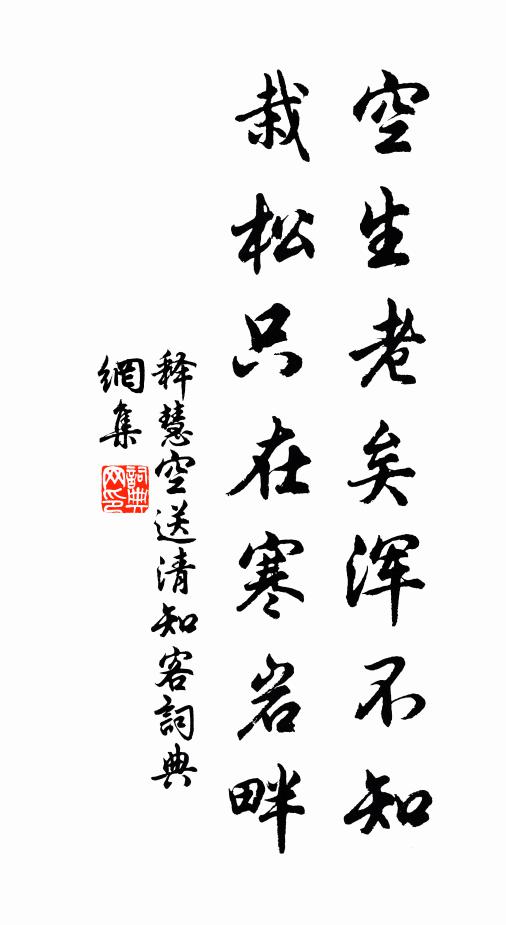 空生老矣浑不知
栽松只在寒岩畔
释慧空送清知客詞典
網集
詞典
网印